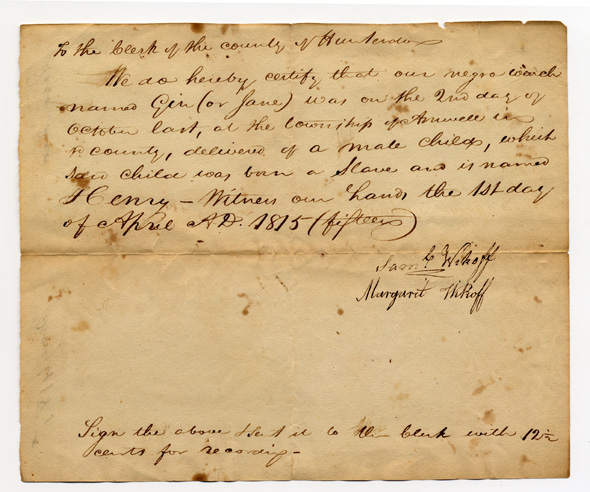 To the Clerk of the county of Hunterdon
We do hereby certify that our negro wench
named Gin (or Jane) was on the 2nd day of
October last, at the township of Amwell in
sd county, delivered of a male child, which
said child was born a Slave and is named
Henry – Witness our hands the 1st day
of April A.D. 1815 (fifteen)
Saml Wikoff
Margarit Wikoff
Sign the above & sent it to the Clerk with 12½
cents for recording –